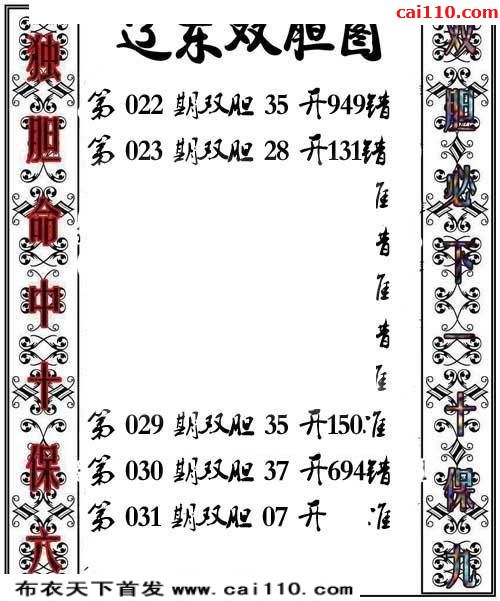 cai110.com
辽东双胆图
独胆命中十保六
双胆必下一十保九
第 022 期双胆 35 开949错
第 023 期双胆 28 开131错
准
错
准
错
准
第 029 期双胆 35 开150准
第 030 期双胆 37 开694错
第 031 期双胆 07 开 准
布衣天下首发 www.cai110.com